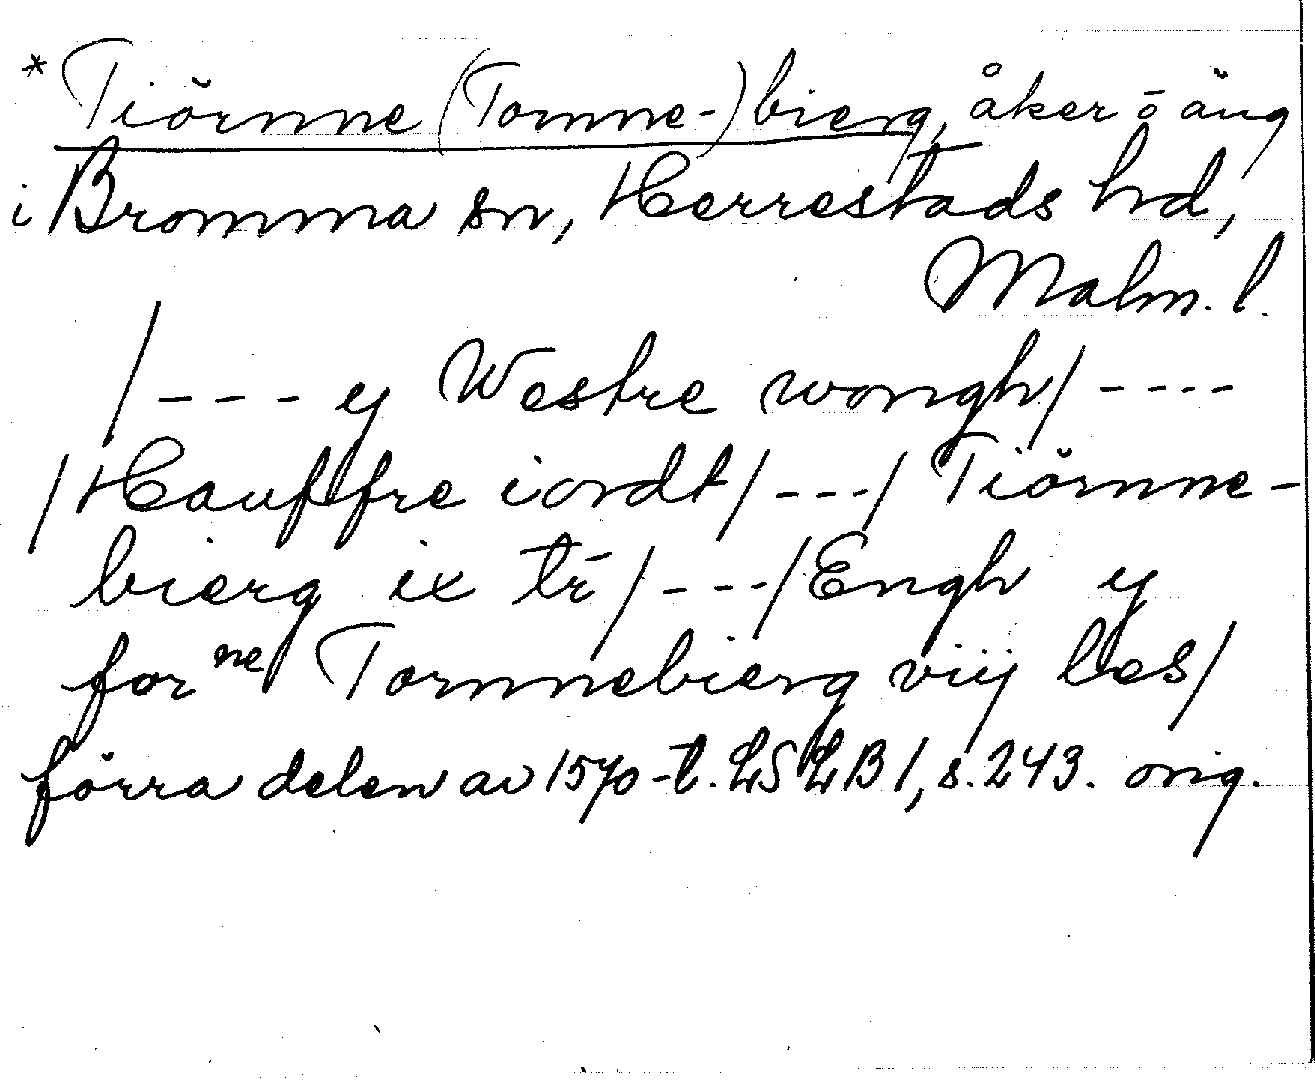 * Tiörnne (Tornne-) bierg, åker o äng
i Bromma sn, Herrestads hd,
Malm. l.
/--- y Westre wongh/----
/Hauffre iordt/---/ Tiörnne-
bierg ix tr̄/---/Engh y
for ne Tornnebierg viij les/
förra delen av 1570-t. LSLB 1, s. 243. orig.